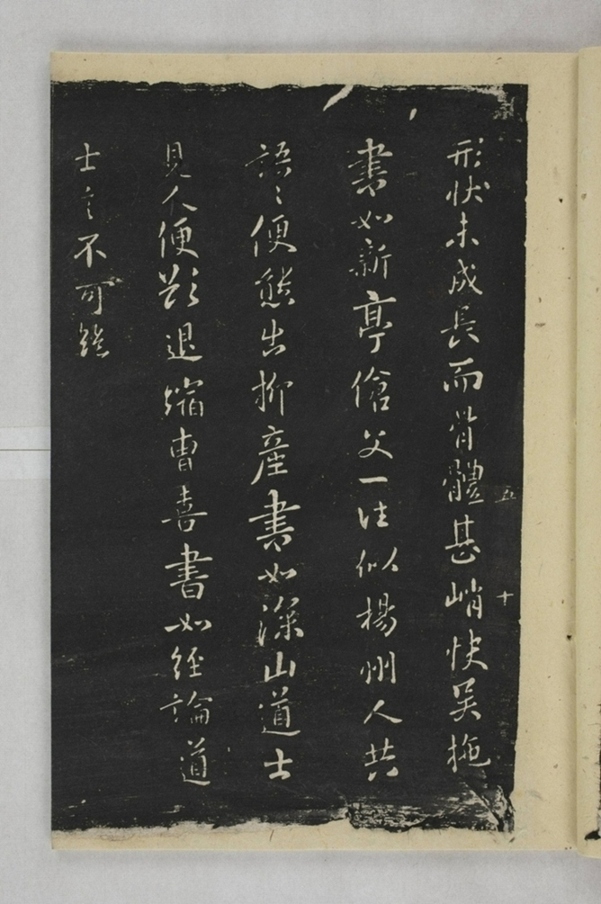 形状未成長而骨體甚峭快吴拖
書如新亭傖父一往似楊州人共
語々便態出抑產書如深山道士
見人便欲退縮曹喜書如經論道
士言不可絶
五
十